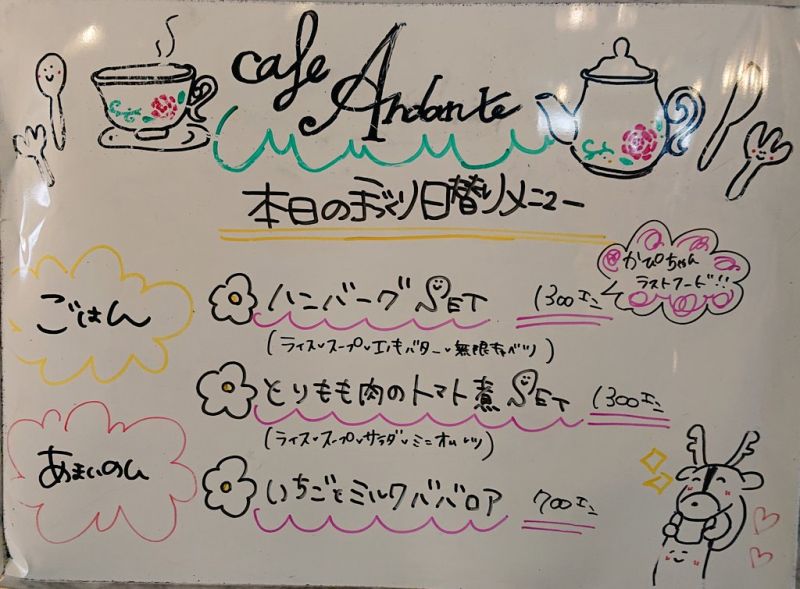 cafe Andante
本日の手づくり日替りメニュー
かぴちゃん
ラストフード!!
ごはん
ハンバーグSET 1300エン
(ライス・スープ・エノキバター・無限キャベツ)
とりもも肉のトマト煮SET 1300エン
(ライス・スープ・サラダ・ミニオムレツ)
あまいのん
いちごとミルクババロア 700エン